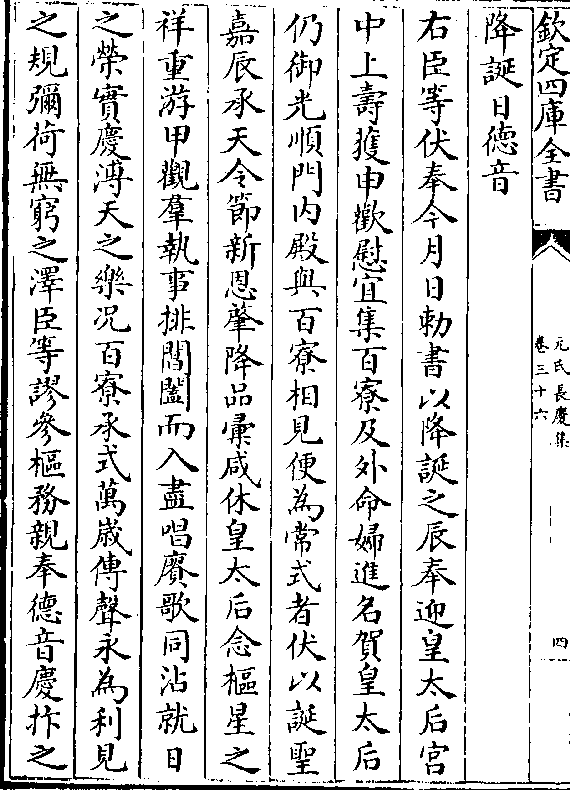 欽定四庫全書
元氏長慶集
卷三十六
四
降誕日德音
右臣等伏奉今月日勅書以降誕之辰奉迎皇太后宫
中上壽獲申歡慰宜集百寮及外命婦進名賀皇太后
仍御光順門内殿與百寮相見便為常式者伏以誕聖
嘉辰承天令節新恩肇降品彙咸休皇太后念樞星之
祥重游甲觀羣執事排閶闔而入盡唱賡歌同沾就日
之榮實慶溥天之樂况百寮承式萬歲傳聲永為利見
之規彌荷無窮之澤臣等謬參樞務親奉德音慶抃之